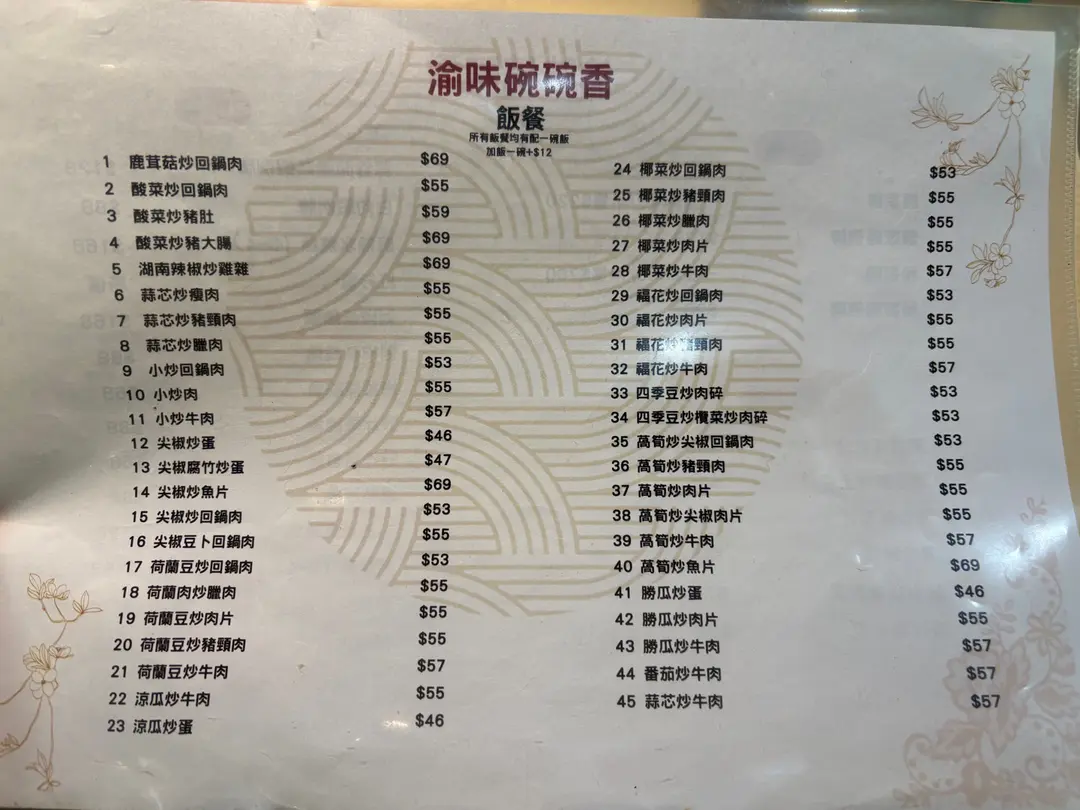 渝味碗碗香
飯餐
所有飯餐均有配一碗飯
加飯一碗+$12
1 鹿茸菇炒回鍋肉 $69
2 酸菜炒回鍋肉 $55
3 酸菜炒豬肚 $59
4 酸菜炒豬大腸 $69
5 湖南辣椒炒雞雜 $69
6 蒜芯炒瘦肉 $55
7 蒜芯炒豬頸肉 $55
8 蒜芯炒臘肉 $55
9 小炒回鍋肉 $53
10 小炒肉 $55
11 小炒牛肉 $57
12 尖椒炒蛋 $46
13 尖椒腐竹炒蛋 $47
14 尖椒炒魚片 $69
15 尖椒炒回鍋肉 $53
16 尖椒豆卜回鍋肉 $55
17 荷蘭豆炒回鍋肉 $53
18 荷蘭肉炒臘肉 $55
19 荷蘭豆炒肉片 $55
20 荷蘭豆炒豬頸肉 $55
21 荷蘭豆炒牛肉 $57
22 涼瓜炒牛肉 $55
23 涼瓜炒蛋 $46
24 椰菜炒回鍋肉 $53
25 椰菜炒豬頸肉 $55
26 椰菜炒臘肉 $55
27 椰菜炒肉片 $55
28 椰菜炒牛肉 $57
29 福花炒回鍋肉 $53
30 福花炒肉片 $55
31 福花炒豬頸肉 $55
32 福花炒牛肉 $57
33 四季豆炒肉碎 $53
34 四季豆炒欖菜炒肉碎 $53
35 萵筍炒尖椒回鍋肉 $53
36 萵筍炒豬頸肉 $55
37 萵筍炒肉片 $55
38 萵筍炒尖椒肉片 $55
39 萵筍炒牛肉 $57
40 萵筍炒魚片 $69
41 勝瓜炒蛋 $46
42 勝瓜炒肉片 $55
43 勝瓜炒牛肉 $57
44 番茄炒牛肉 $57
45 蒜芯炒牛肉 $57